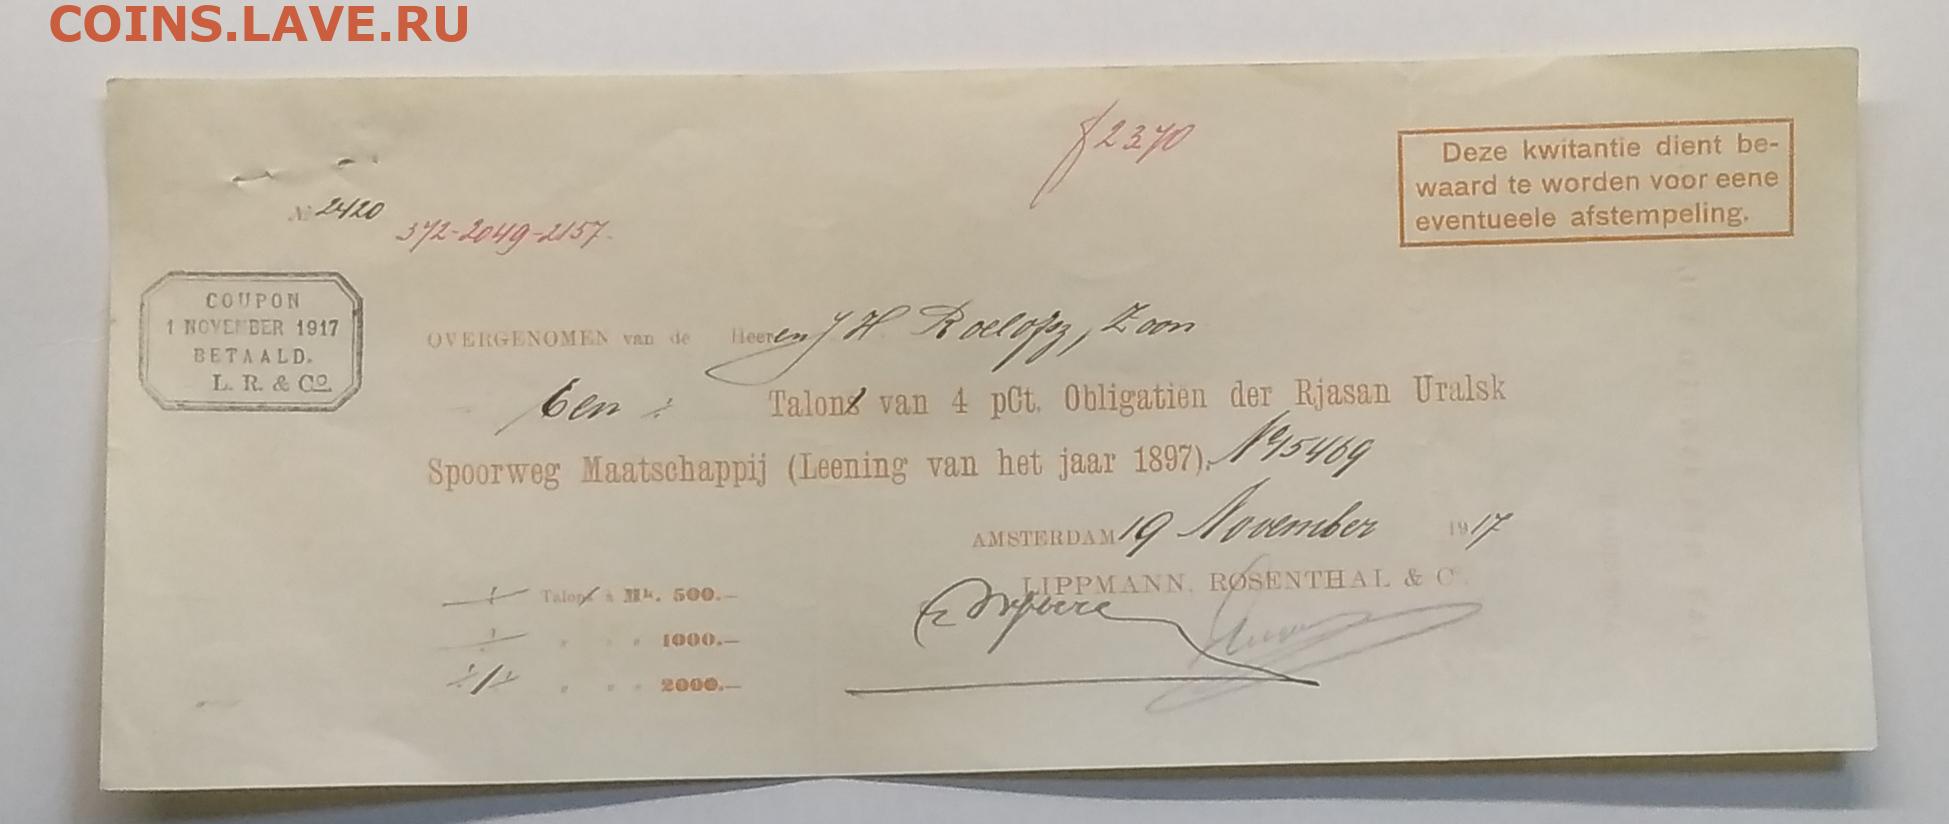 COINS.LAVE.RU
f 2370
Deze kwitantie dient be-
waard te worden voor eene
eventueele afstempeling.
№ 2420
372-2049-2157.
COUPON
1 NOVEMBER 1917
BETAALD.
L. R. & Co.
OVERGENOMEN van de Heeren J H. Roelofsz, Zoon
Een Talons van 4 pCt. Obligatiën der Rjasan Uralsk
Spoorweg Maatschappij (Leening van het jaar 1897). No 15469
AMSTERDAM 19 November 1917
LIPPMANN, ROSENTHAL & Co.
Talons à Mk. 500.—
" " " 1000.—
1 " " " 2000.—